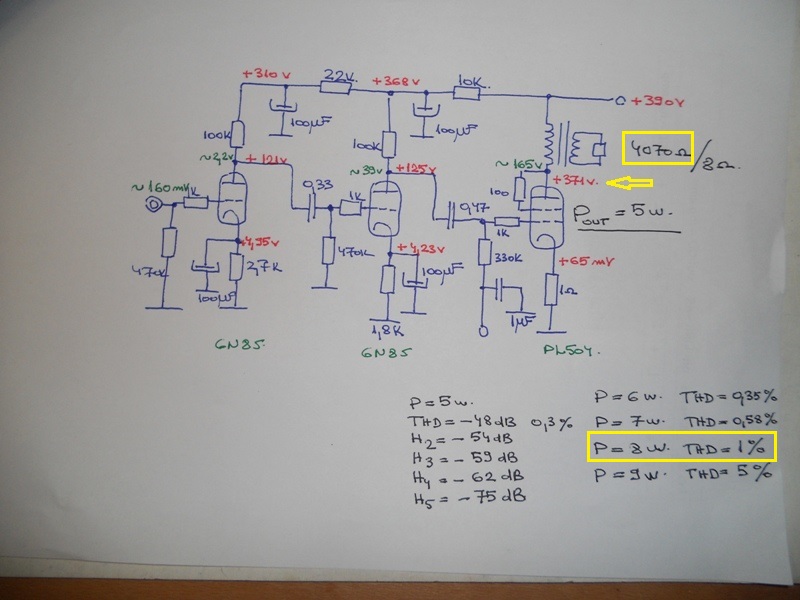 +310v
22k
+368v
10K
+390v
100µF
100µF
100K
100K
4070Ω/8Ω
~2,2v
+121v
~39v
+125v
~165v
+371v
~160mv
1K
0,33
1K
0,47
100
POUT = 5w.
1K
+1,95v
+4,23v
+65mv
470K
2,7K
470K
330K
100µF
100µF
1Ω
1,8K
1µF
6N85
6N85
PL504.
P = 5w.
THD = -48dB 0,3%
H2 = -54dB
H3 = -59dB
H4 = -62dB
H5 = -75dB
P = 6w. THD = 0,35%
P = 7w. THD = 0,58%
P = 8w. THD = 1%
P = 9w. THD = 5%